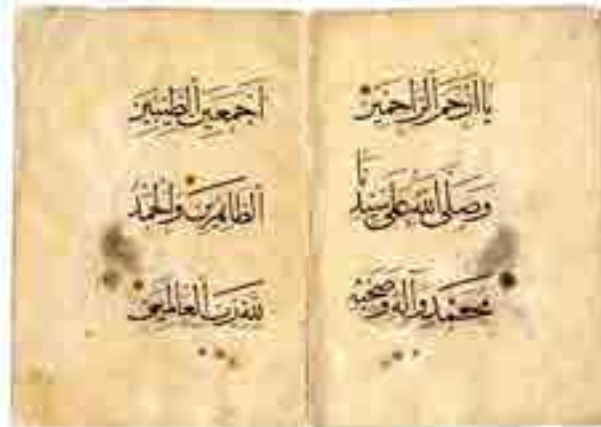 يا أرحم الراحمين
وصلى الله على سيدنا
محمد وآله وصحبه
أجمعين الطيبين
الطاهرين والحمد
لله رب العالمين